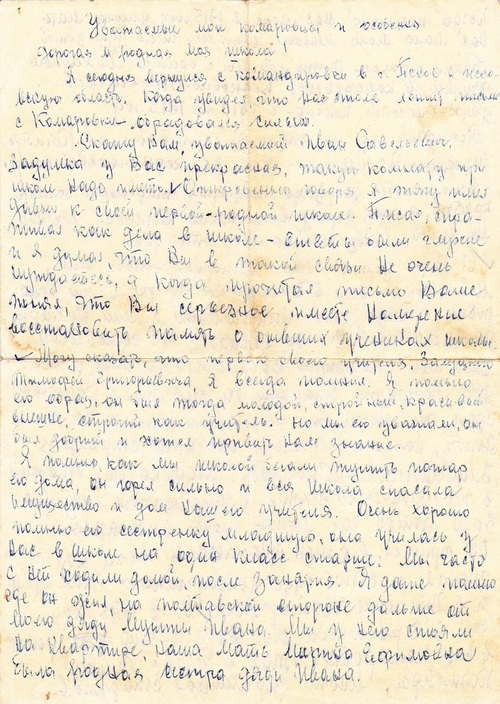 Уважаемые мои комаровцы и особенно
дорогая и родная моя школа!
Я сегодня вернулся с командировки в г. Псков и Пско-
вскую область, когда увидел что на столе лежит письмо
с Комаровки – обрадовался сильно.
Скажу Вам уважаемый Иван Савельевич,
задумка у Вас прекрасная, такую комнату при
школе надо иметь. Откровенно говоря я тяжу
к своей первой-родной школе. Писал, спра-
шивал как дела в школе – ответы были
и я думал, что Вы в такой связи не очень
нуждаетесь, а когда прочитал письмо Ваше
понял, что Вы серьезное имеете намерение
восстановить память о бывших учениках школы.
Могу сказать, что первого своего учителя,
Тимофей Григорьевича, я всегда помнил. Я помню
его образ, он был тогда молодой, стройный, красивый
внешне, строгий как учитель. Но мы его уважали, он
был добрый и хотел привить нам знание.
Я помню, как мы школой бегали тушить пожар
его дома, он горел сильно и вся школа спасала
имущество и дом нашего учителя. Очень хорошо
помню его сестренку младшую, она училась у
нас в школе на один класс старше. Мы часто
с ней ходили домой, после занятия. Я даже помню
где он жил, на полтавской стороне дальше от
моего дяди Мушты Ивана. Мы у него стояли
на квартире, наша мать Марфа Ефимовна
была родная сестра дяди Ивана.